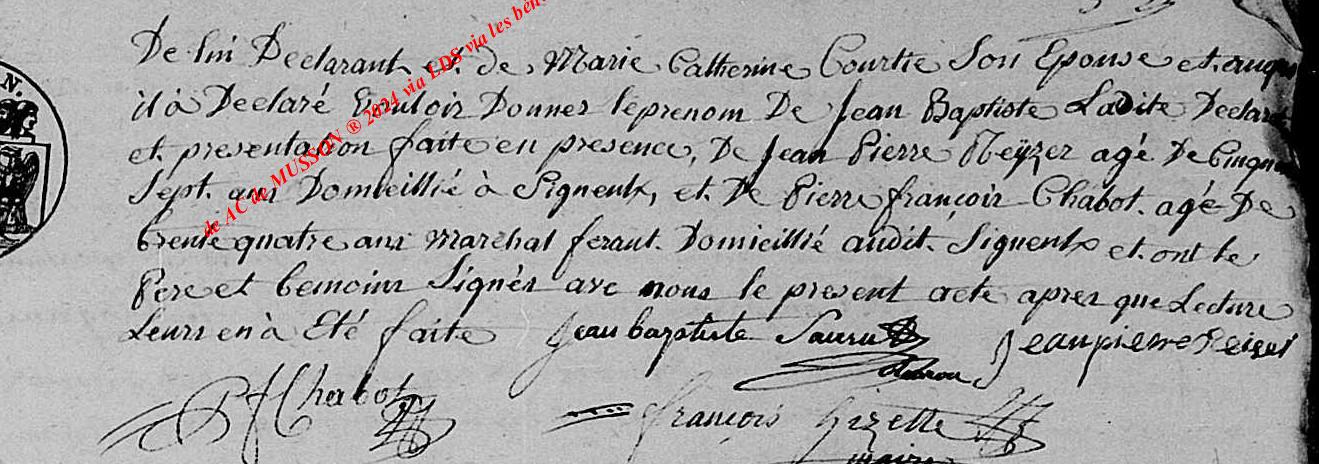 De lui Declarant et de Marie Catherine Courtie Son Epouse et auqu
il à Declaré Vouloir Donner le prenom De Jean Baptiste Ladite Declara
et presentation faite en presence, De Jean Pierre Meyzer agé De Cinquan
Sept ans Domicillié à Signeulx, et De Pierre françois Chabot agé De
trente quatre ans Marchal ferant Domicillié audit Signeulx et ont le
Pere et temoins Signés avec nous le present acte apres que Lecture
Leurs en à Eté faite Jean baptiste Jean pierre
PF Chabot françois Gizette
maire
N.
de AC de MUSSON ® 2024 via LDS via les bén